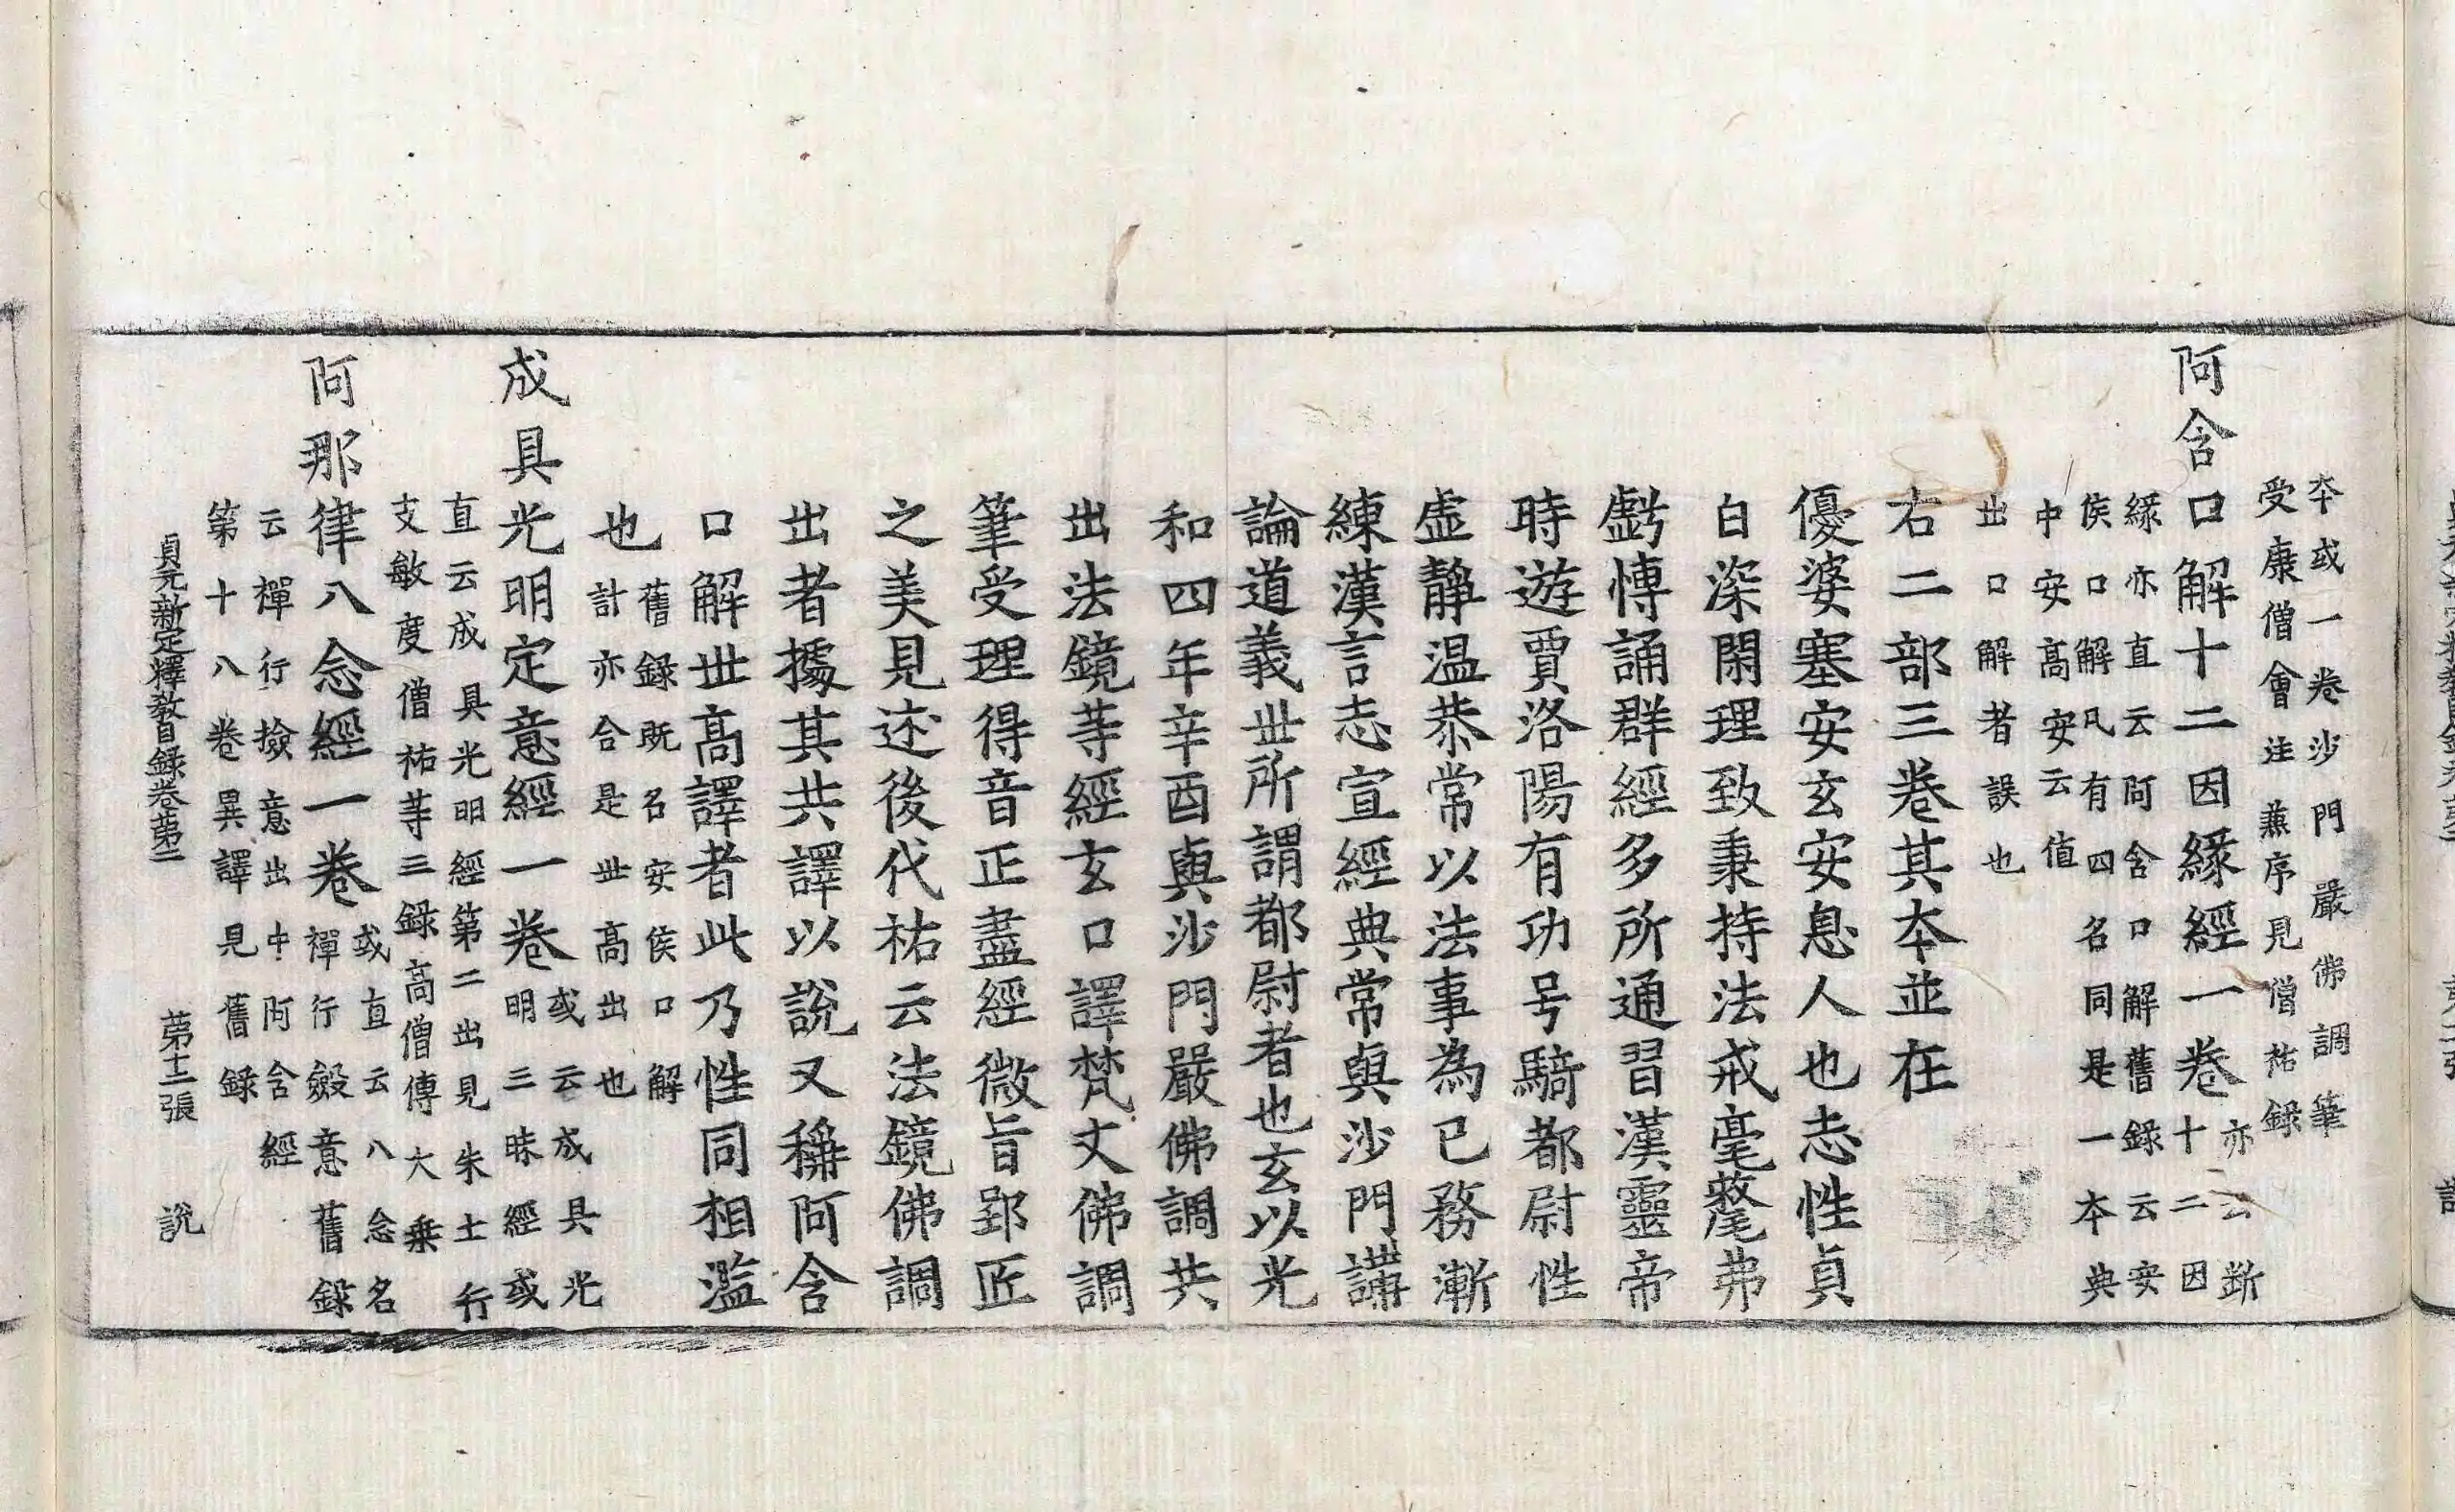 本或一卷沙門嚴佛調筆
受康僧會注兼序見僧祐録
阿含口解十二因縁經一卷
亦云断
十二因
縁亦直云阿含口解舊録云安
侯口解凡有四名同是一本典
中安髙安云值
出口解者誤也
右二部三卷其本並在
優婆塞安玄安息人也志性貞
白深閑理致秉持法戒毫氂弗
虧愽誦群經多所通習漢靈帝
時遊賈洛陽有功号騎都尉性
虚静温恭常以法事為已務漸
練漢言志宣經典常與沙門講
論道義丗所謂都尉者也玄以光
和四年辛酉與沙門嚴佛調共
出法鏡䒭經玄口譯梵文佛調
筆受理得音正盡經微旨郢匠
之美見述後代祐云法鏡佛調
出者據其共譯以說又稱阿含
口解丗髙譯者此乃性同相濫
也
舊録既名安侯口解
計亦合是丗髙出也
成具光明定意經一卷
或云成具光
明三昧經或
直云成具光明經第二出見朱士行
支敏度僧祐䒭三録高僧傳大乗
阿那律八念經一卷
或直云八念名
禪行斂意舊録
云禪行撿意出中阿含經
第十八卷異譯見舊録
貞元新定釋教目録卷苐二 苐十二張 說